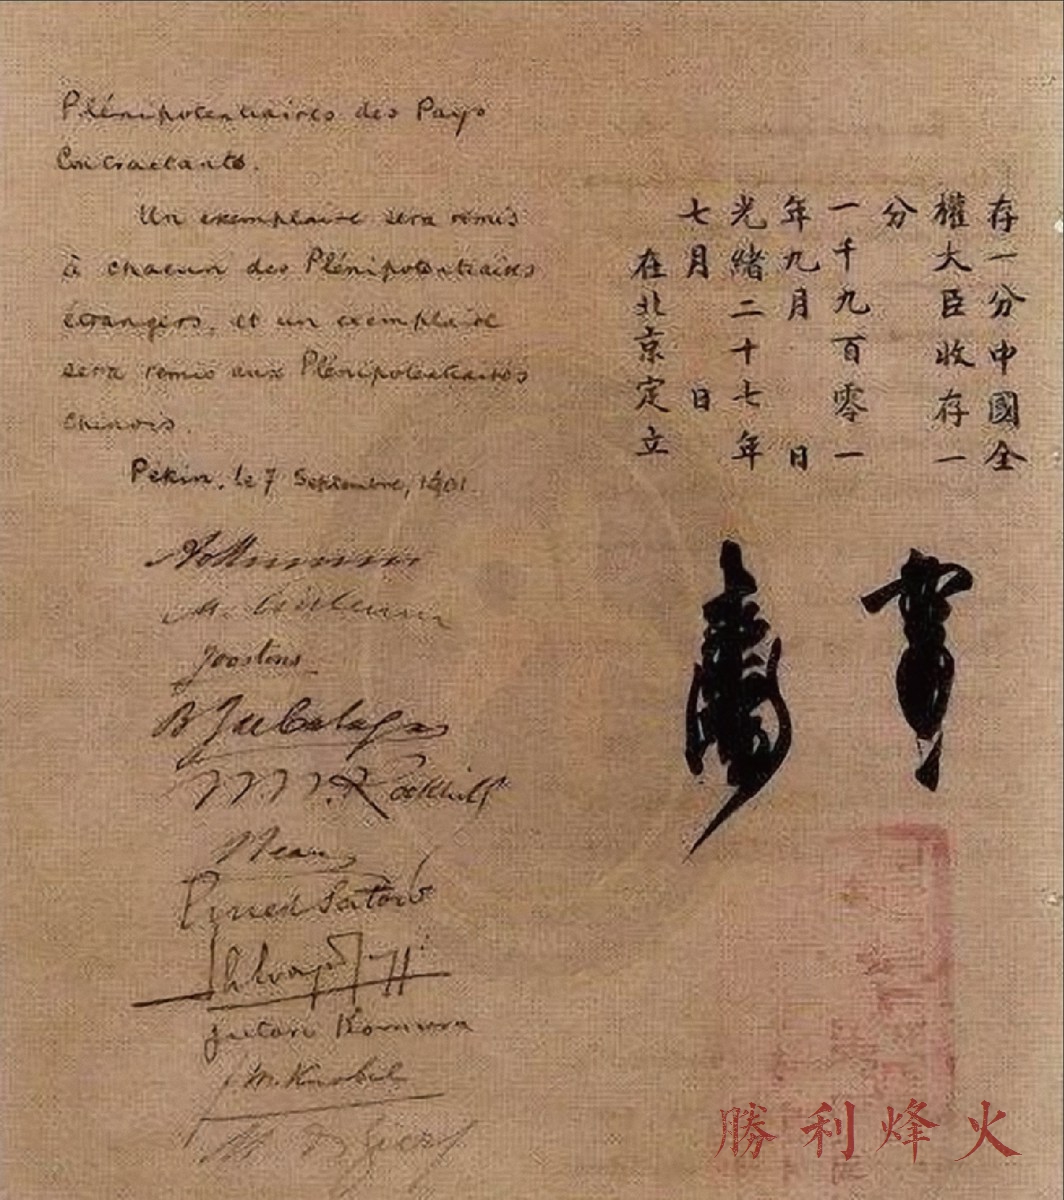 Plénipotentiaires des Pays
Contractants.
Un exemplaire sera remis
à chacun des Plénipotentiaires
étrangers, et un exemplaire
sera remis aux Plénipotentiaires
Chinois.
Pekin, le 7 Septembre, 1901.
Joostens
W. W. Rockhill
Beau
Ernest Satow
Jutaro Komura
F. M. Knobel
M. de Giers
存一分中國全
權大臣收存一
分
一千九百零一
年九月 日
光緒二十七年
七月 日
在北京定立
勝利烽火